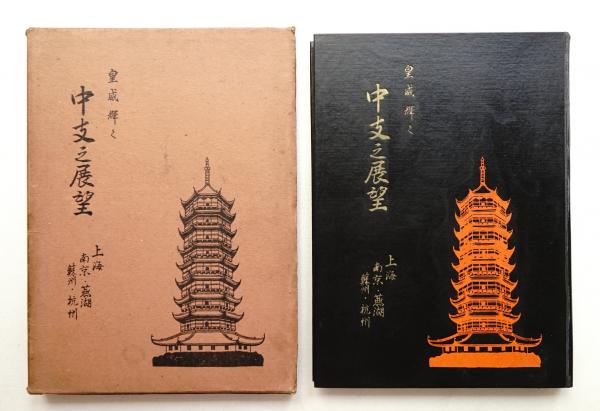 皇威輝く
中支之展望
上海
南京・蕪湖
蘇州・杭州
皇威輝く
中支之展望
上海
南京・蕪湖
蘇州・杭州